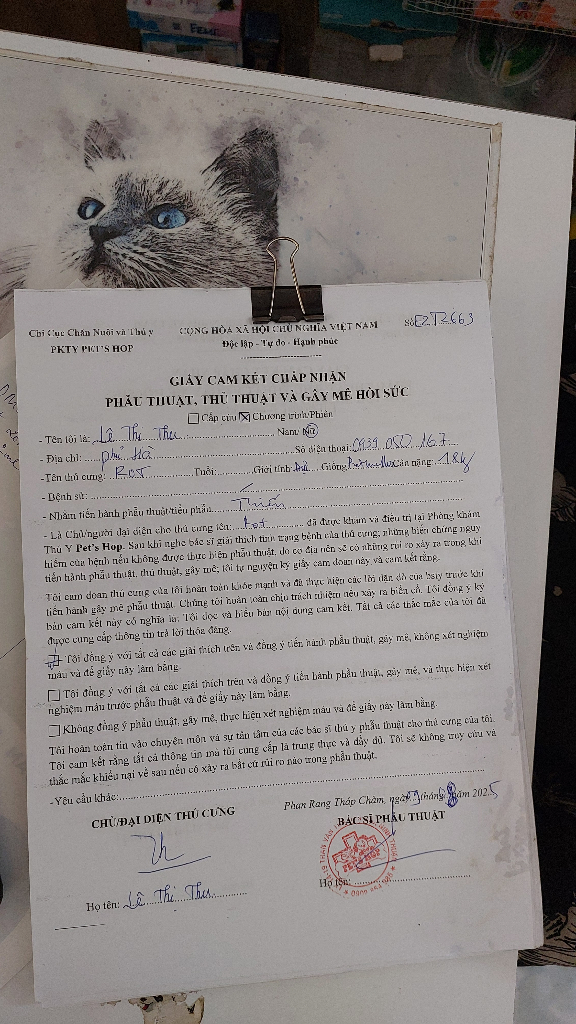 Chi Cục Chăn Nuôi và Thú y
PKTY PET'S HOP
CỘNG HÒA XÃ HỘI CHỦ NGHĨA VIỆT NAM
Độc lập - Tự do - Hạnh phúc
Số EZT2663
GIẤY CAM KẾT CHẤP NHẬN
PHẪU THUẬT, THỦ THUẬT VÀ GÂY MÊ HỒI SỨC
Cấp cứu Chương trình/Phiên
- Tên tôi là: Lê Thị Thu Nam/ Nữ
- Địa chỉ: phủ Hà Số điện thoại 0939 050 167
- Tên thú cưng: Tuổi: Giới tính: Đực Giống Cân nặng: 18kg
- Bệnh sử:
- Nhằm tiến hành phẫu thuật/tiểu phẫu Thiến
- Là Chủ/người đại diện cho thú cưng tên: đã được khám và điều trị tại Phòng khám
Thú Y Pet's Hop. Sau khi nghe bác sĩ giải thích tình trạng bệnh của thú cưng, những biến chứng nguy
hiểm của bệnh nếu không được thực hiện phẫu thuật, do cơ địa nên sẽ có những rủi ro xảy ra trong khi
tiến hành phẫu thuật, thủ thuật, gây mê, tôi tự nguyện ký giấy cam đoan này và cam kết rằng.
Tôi cam đoan thú cưng của tôi hoàn toàn khỏe mạnh và đã thực hiện các lời dặn dò của bsty trước khi
tiến hành gây mê phẫu thuật. Chúng tôi hoàn toàn chịu trách nhiệm nếu xảy ra biến cố. Tôi đồng ý ký
bản cam kết này có nghĩa là: Tôi đọc và hiểu bản nội dung cam kết. Tất cả các thắc mắc của tôi đã
được cung cấp thông tin trả lời thỏa đáng.
Tôi đồng ý với tất cả các giải thích trên và đồng ý tiến hành phẫu thuật, gây mê, không xét nghiệm
máu và để giấy này làm bằng.
Tôi đồng ý với tất cả các giải thích trên và đồng ý tiến hành phẫu thuật, gây mê, và thực hiện xét
nghiệm máu trước phẫu thuật và để giấy này làm bằng.
Không đồng ý phẫu thuật, gây mê, thực hiện xét nghiệm máu và để giấy này làm bằng.
Tôi hoàn toàn tin vào chuyên môn và sự tận tâm của các bác sĩ thú y phẫu thuật cho thú cưng của tôi.
Tôi cam kết rằng tất cả thông tin mà tôi cung cấp là trung thực và đầy đủ. Tôi sẽ không truy cứu và
thắc mắc khiếu nại về sau nếu có xảy ra bất cứ rủi ro nào trong phẫu thuật.
- Yêu cầu khác:
Phan Rang Tháp Chàm, ngày tháng 8 năm 2025
CHỦ/ĐẠI DIỆN THÚ CƯNG
BÁC SĨ PHẪU THUẬT
Họ tên: Lê Thị Thu
Họ tên: